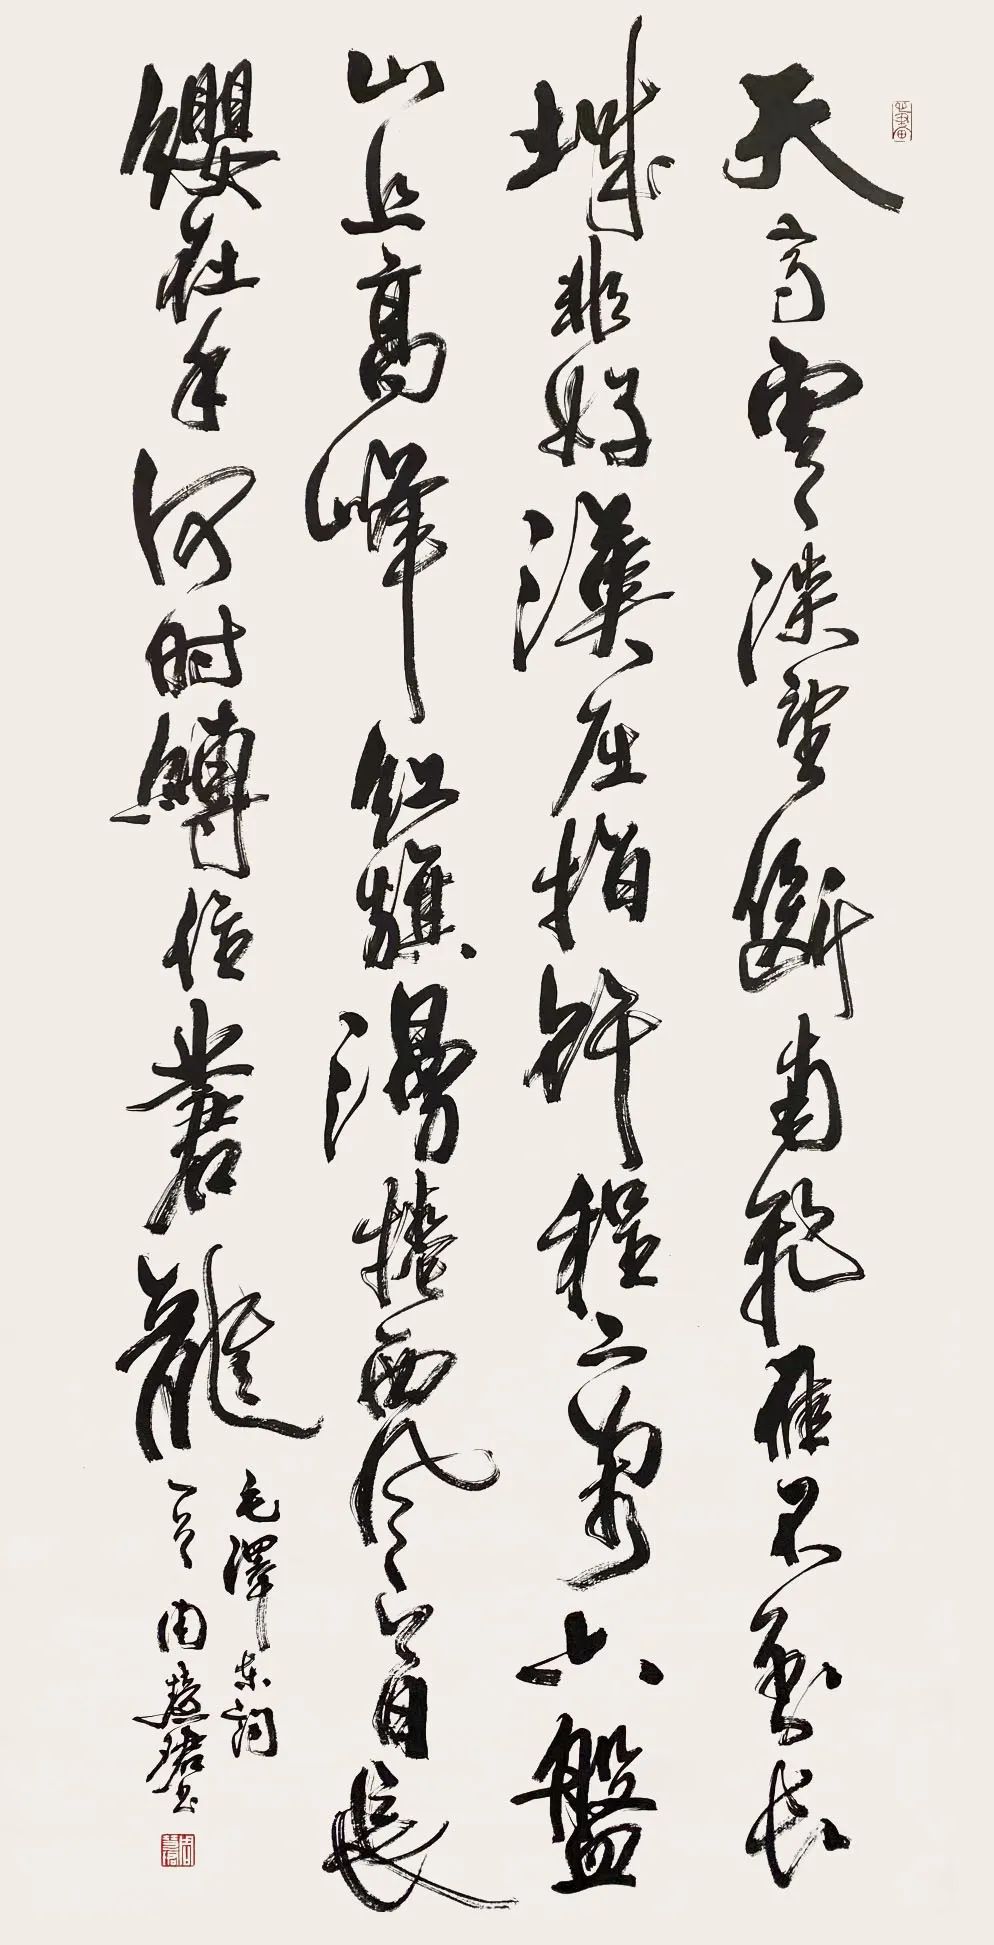 天高雲淡望斷南飛雁不到长
城非好漢屈指行程二萬六盤
山上高峰紅旗漫捲西風今日長
纓在手何时縛住蒼龍
毛澤东詞
一首周慧珺书